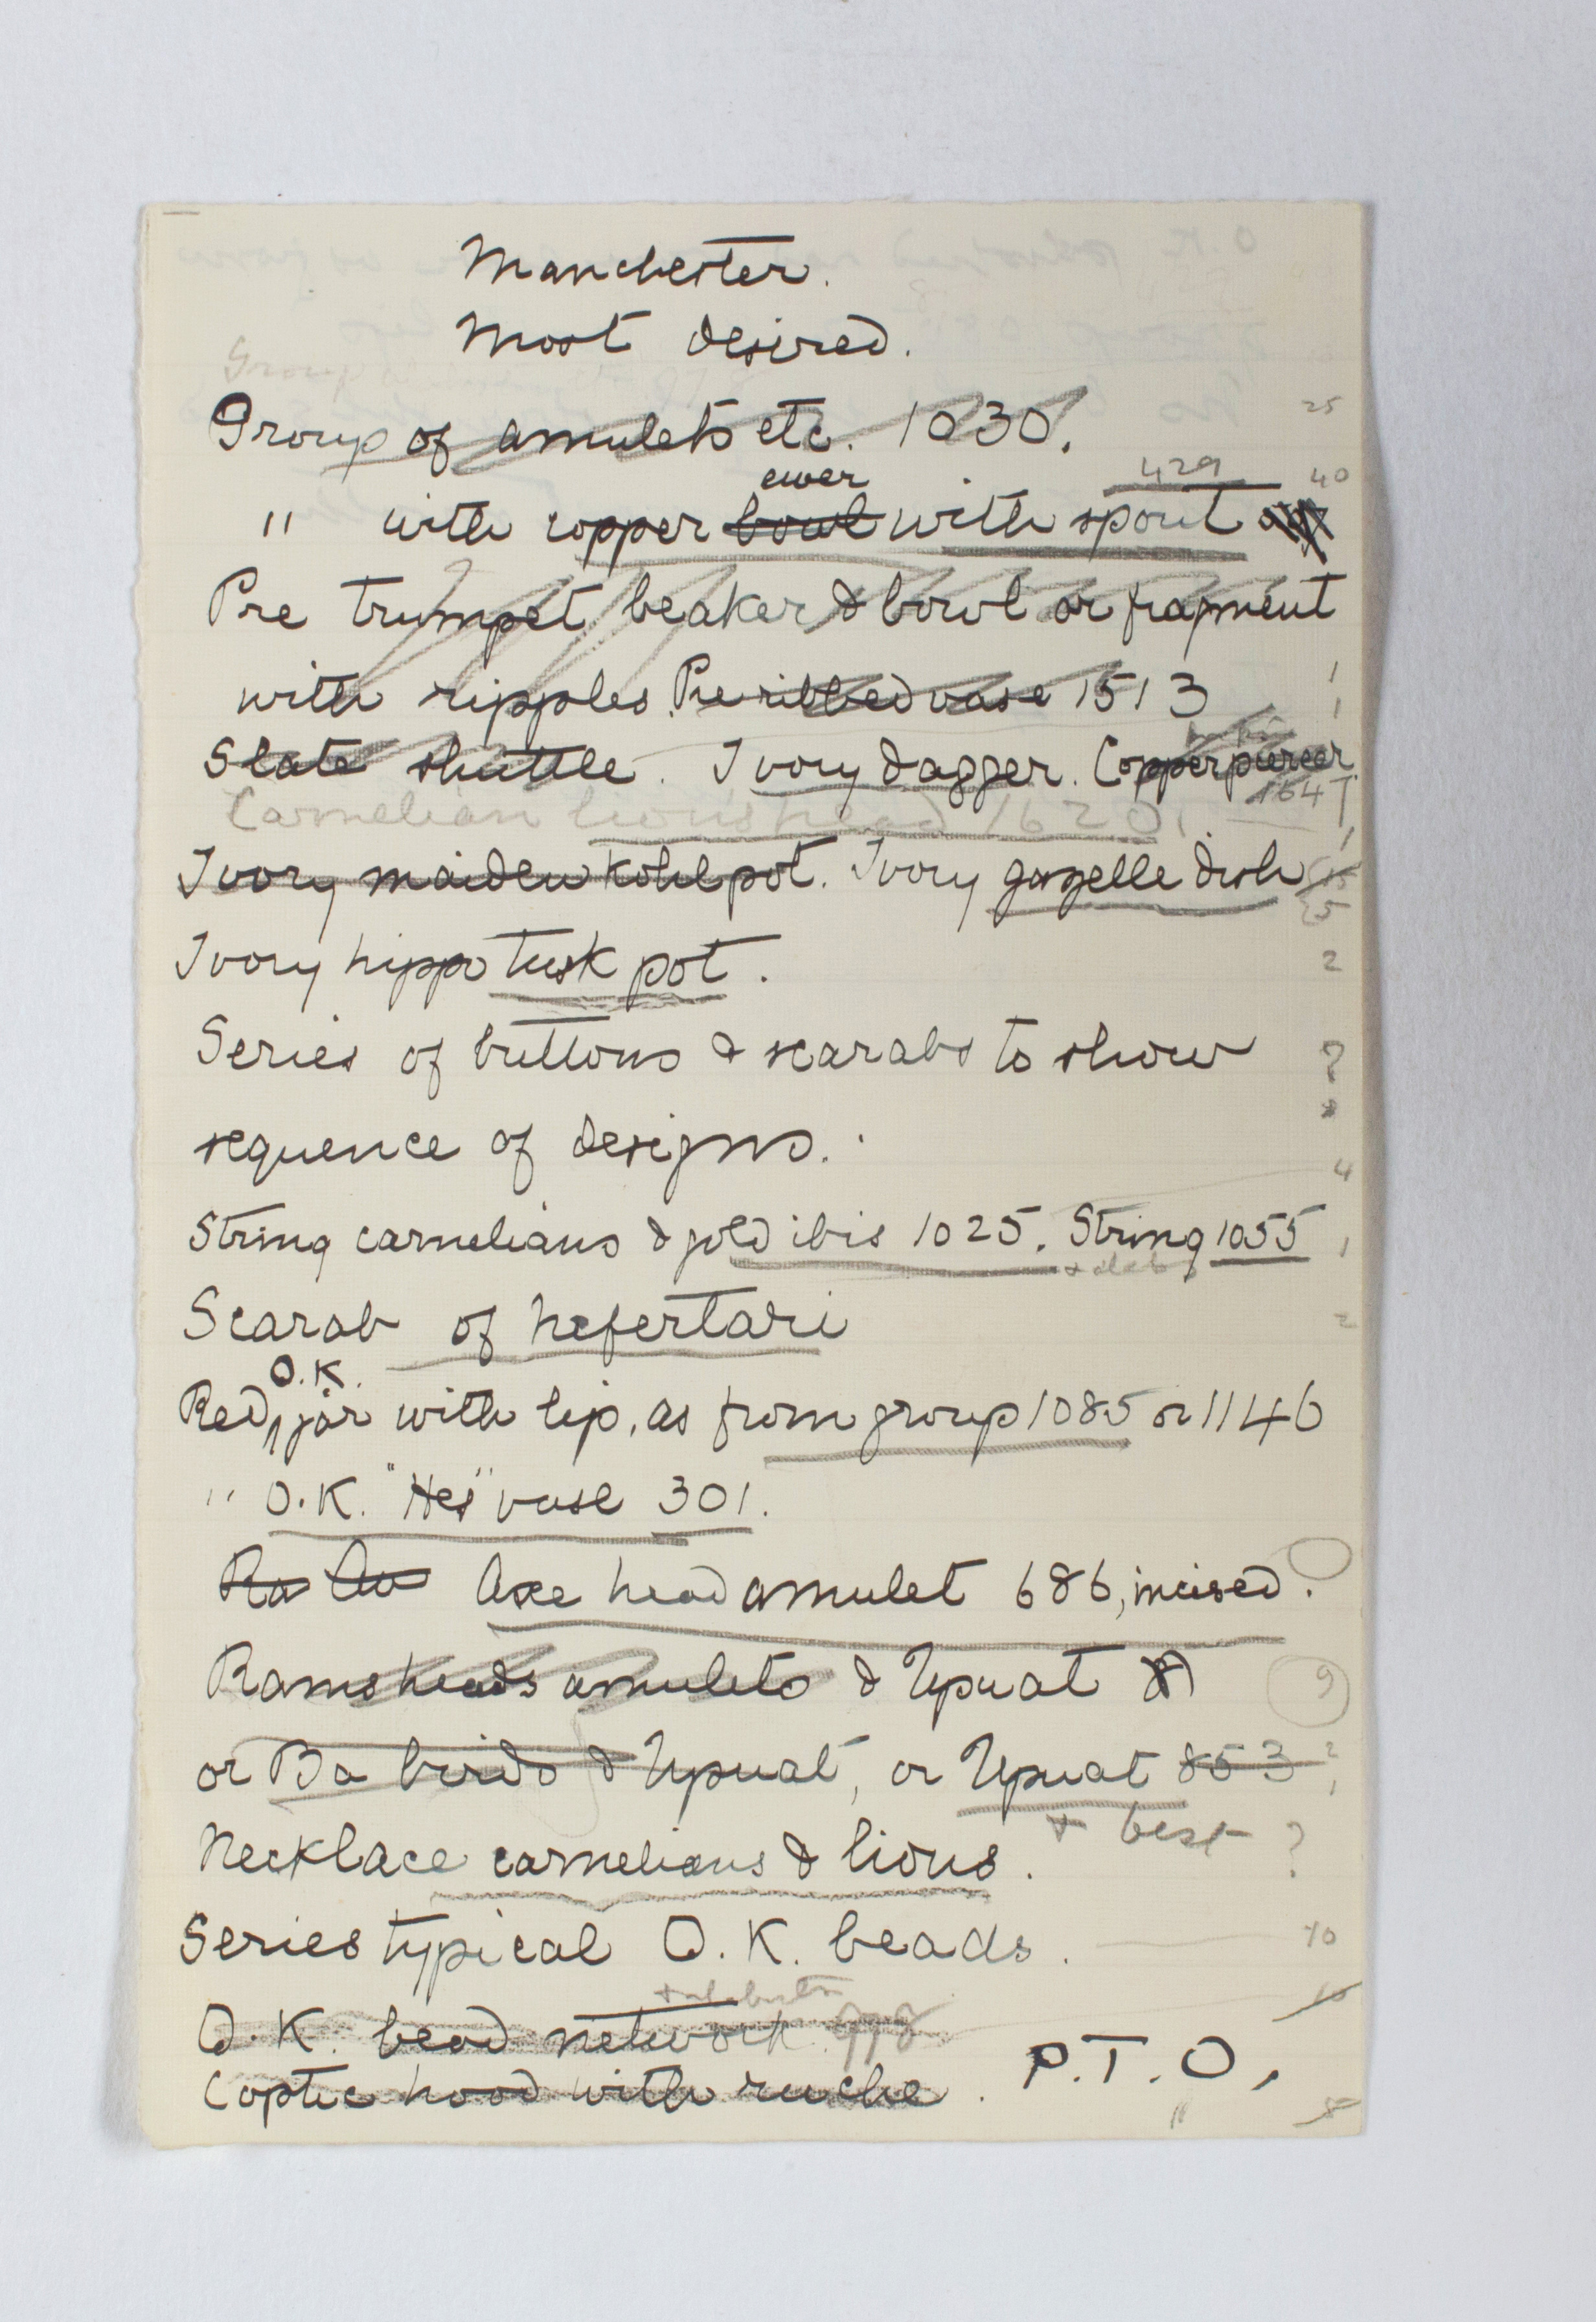 Manchester.
Most desired.
Group
Group of amulets etc. 1030. 25
ewer 429 40
" with copper bowl with spout
Pre trumpet beaker & bowl or fragment
with ripples. Pre ribbed vase 1513 1
Slate shuttle. Ivory dagger. Copper piercer 1
1647
Carnelian lions head 1620. 1
Ivory maiden kohl pot. Ivory gazelle dish
5
Ivory hippo tusk pot. 2
Series of buttons & scarabs to show ?
sequence of designs.
4
String carnelians & gold ibis 1025. String 1055 1
Scarab of Nefertari 2
O.K.
Red jar with lip, as from group 1085 or 1146
" O.K. "Hes" vase 301.
Ra Axe head amulet 686, incised.
Rams heads amulets & Upuat 9
or Ba birds & Upuat, or Upuat 853 ?
+ best
Necklace carnelians & lions. ?
Series typical O.K. beads. 10
O.K. bead network 978
Coptic hood with ruche. P.T.O.